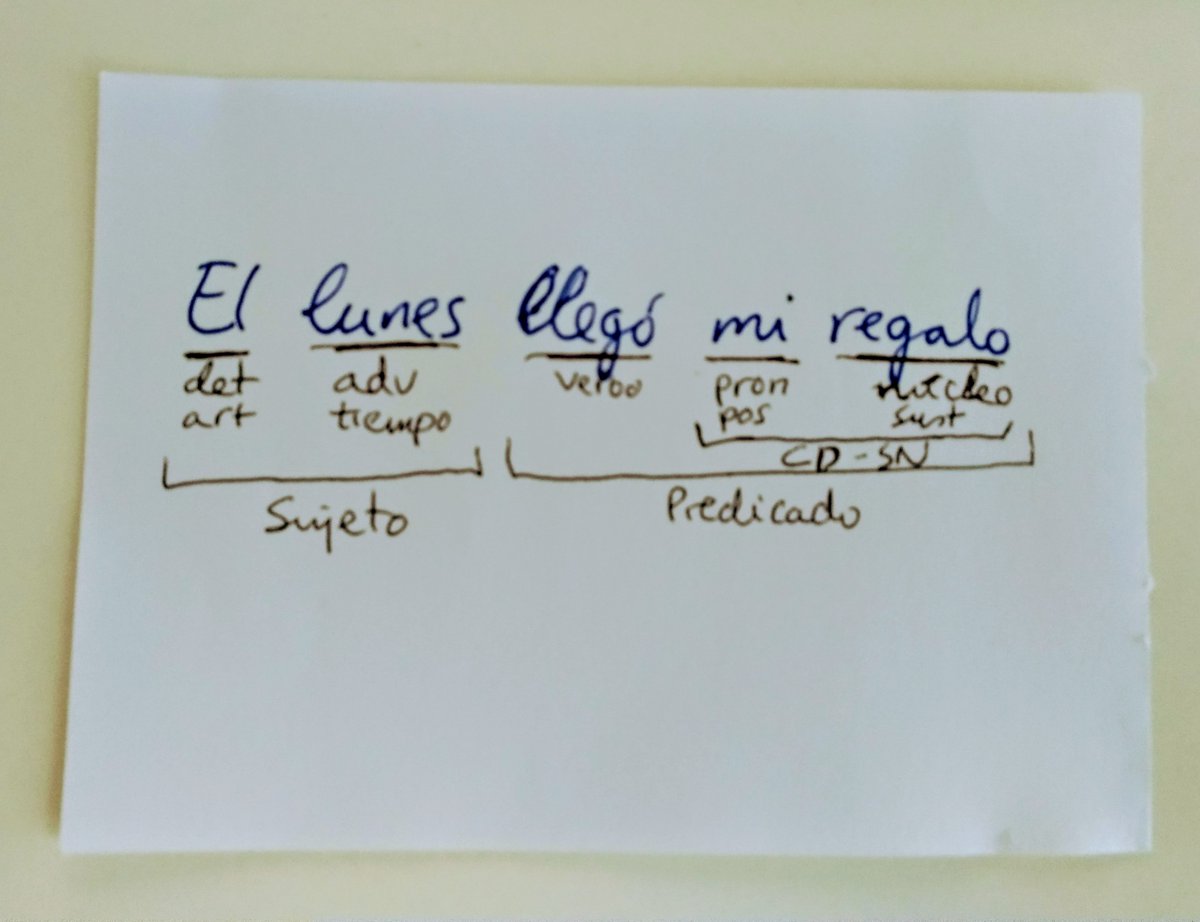 El lunes llegó mi regalo
det adv verbo pron núcleo
art tiempo pos sust
CD-SN
Sujeto Predicado